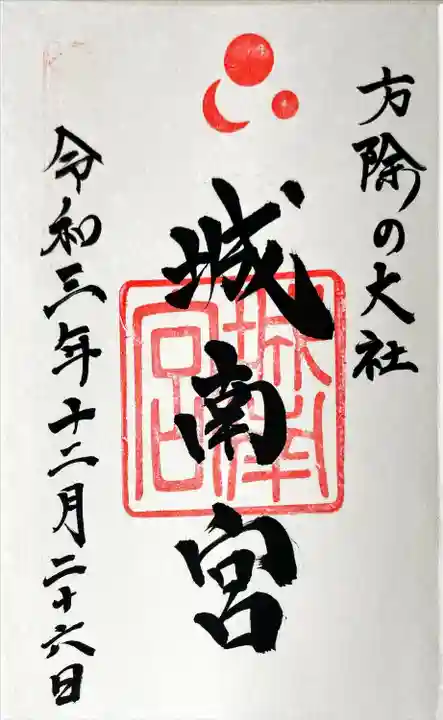 方除の大社
城南宮
令和三年十二月二十六日
城南宮